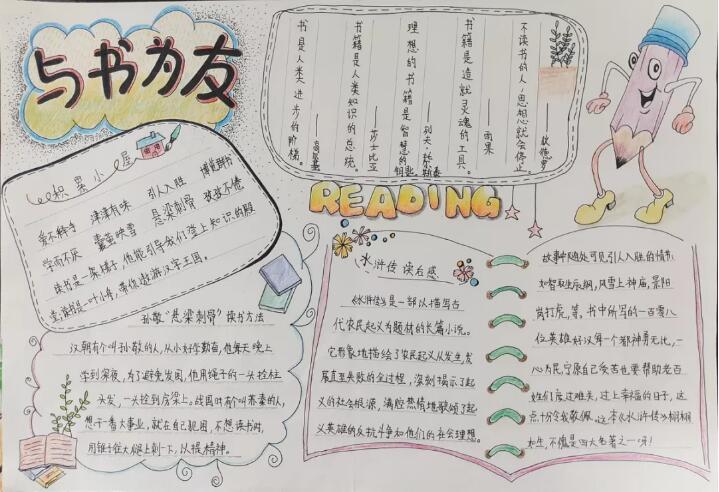 与书为友
积累小屋
爱不释手 津津有味 引人入胜 博览群书
学而不厌 囊萤映雪 悬梁刺骨 孜孜不倦
读书是一架梯子,他能引导我们登上知识的殿
堂,读书是一叶小舟,带你遨游汉字王国。
不读书的人,思想就会停止。
书籍是造就灵魂的工具。
——雨果
理想的书籍是智慧的钥匙。
——列夫·托尔斯泰
书籍是人类知识的总统。
——莎士比亚
书是人类进步的阶梯。
——高尔基
READING
孙敬“悬梁刺骨”读书方法
汉朝有个叫孙敬的人,从小好学勤奋,他每天晚上
学到深夜,为了避免发困,他用绳子的一头拴柱
头发,一头拴到房梁上。战国时有个叫苏秦的人,
想干一番大事业,就在自己犯困,不想读书时,
用锥子往大腿上刺一下,以提精神。
水浒传 读后感
《水浒传》是一部以描写古
代农民起义为题材的长篇小说。
它形象地描绘了农民起义从发生发
展直至失败的全过程,深刻揭示了起
义的社会根源,满腔热情地歌颂了起
义英雄的反抗斗争和他们的社会理想。
故事中随处可见引人入胜的情节
如智取生辰纲,风雪上神庙,景阳
岗打虎,等。书中所写的一百零八
位英雄好汉每一个都神勇无比,一
心为民,宁原自己受苦也要帮助老百
姓们度过难关,过上幸福的日子,这
点十分令我敬佩。这本《水浒传》栩栩
如生,不愧是四大名著之一呀!